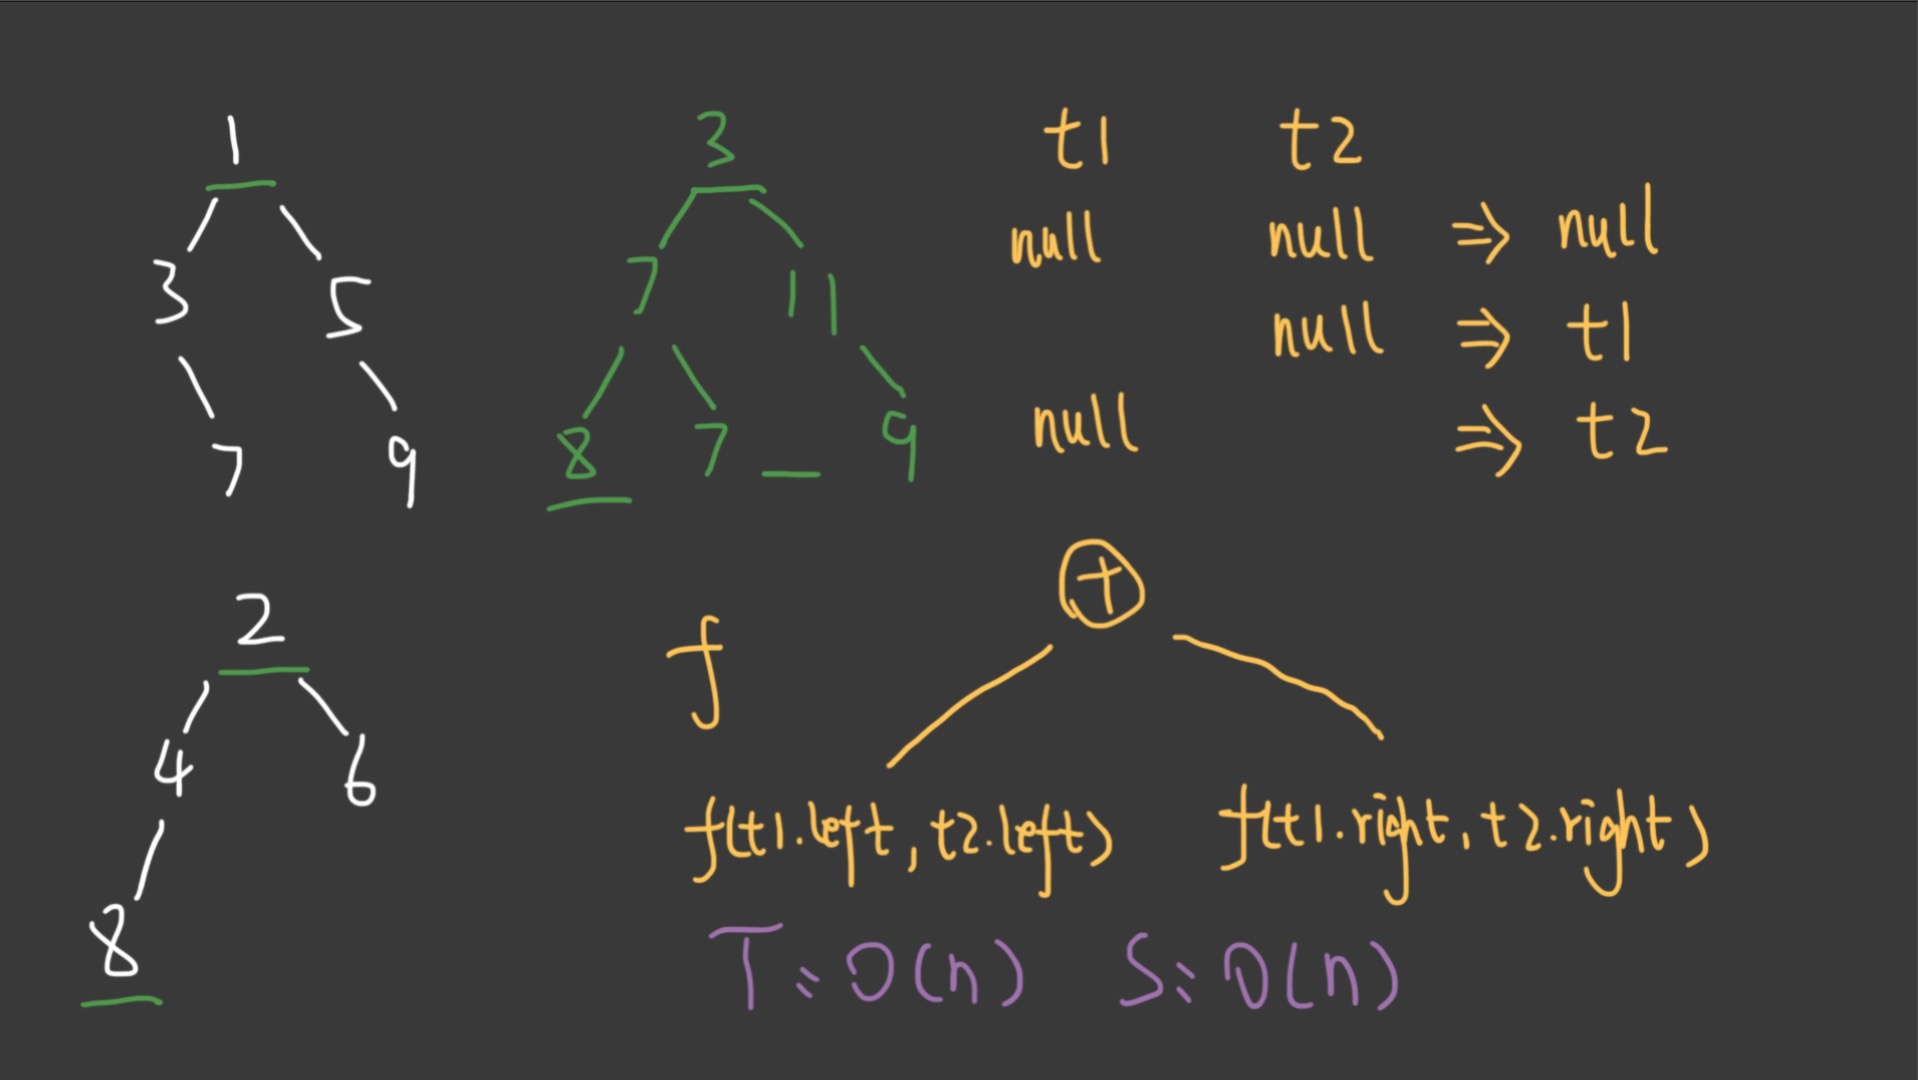 1
3 5
7 9
3
7 11
8 7 9
t1 t2
null null ⇒ null
null ⇒ t1
null ⇒ t2
2
4 6
8
f +
f(t1.left, t2.left) f(t1.right, t2.right)
T: O(n) S: O(n)